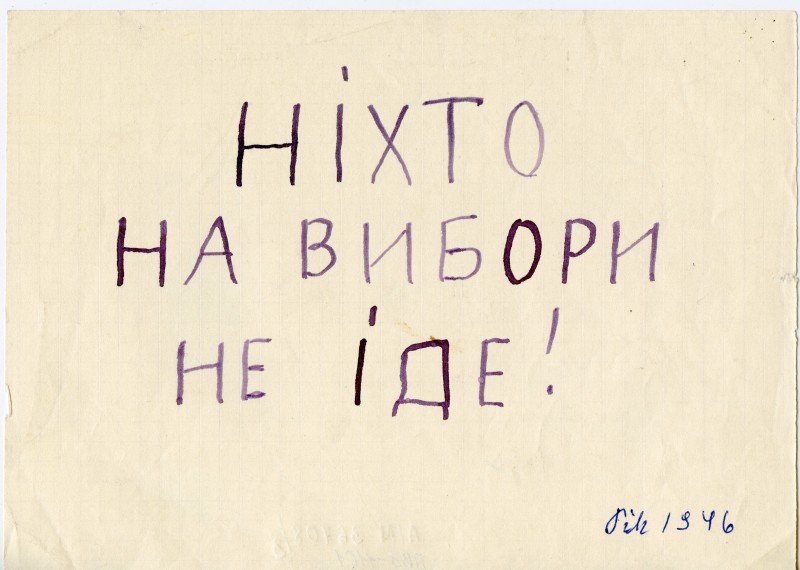 НІХТО
НА ВИБОРИ
НЕ ІДЕ!
Рік 1946